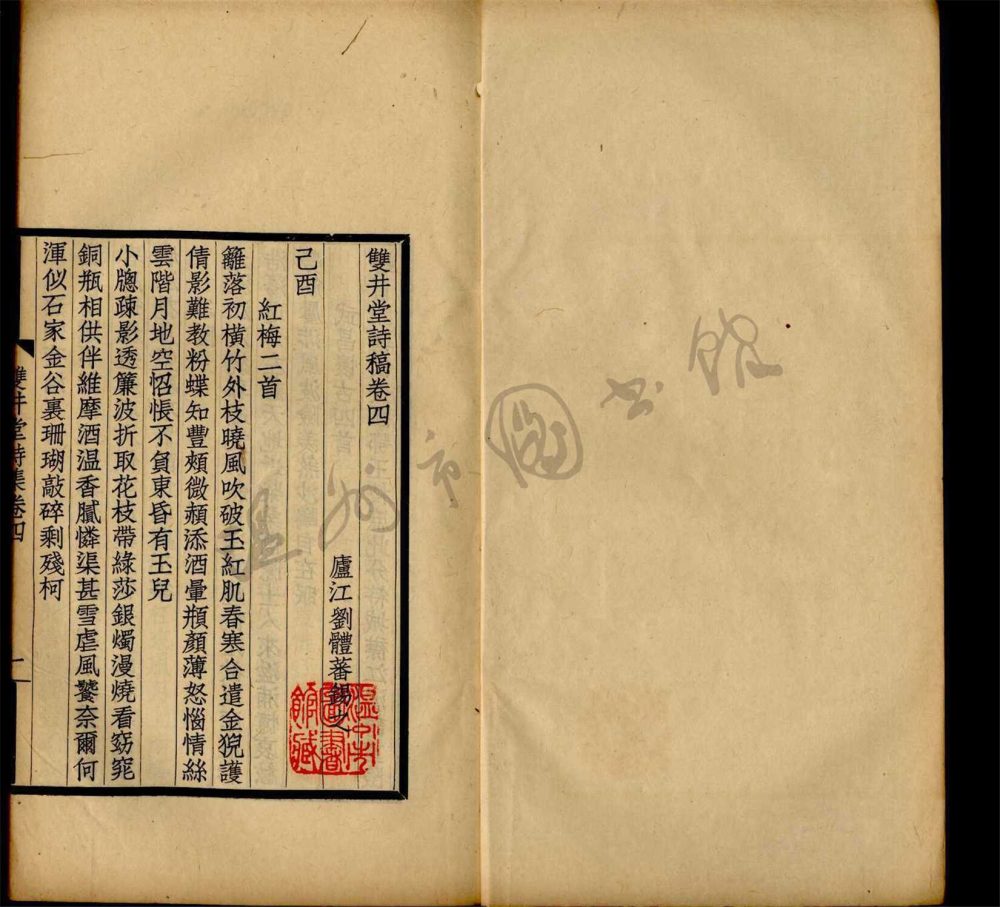 雙井堂詩稿卷四
廬江劉體蕃錫之
己酉
紅梅二首
籬落初橫竹外枝曉風吹破玉紅肌春寒合遣金猊護
倩影難教粉蝶知豐頰微頳添酒暈頩顏薄怒惱情絲
雲階月地空怊悵不負東昏有玉兒
小牕疎影透簾波折取花枝帶綠莎銀燭漫燒看窈窕
銅瓶相供伴維摩酒温香膩憐渠甚雪虐風饕奈爾何
渾似石家金谷裏珊瑚敲碎剩殘柯
雙井堂詩集卷四
一
温州市圖書館藏
温州市圖书馆